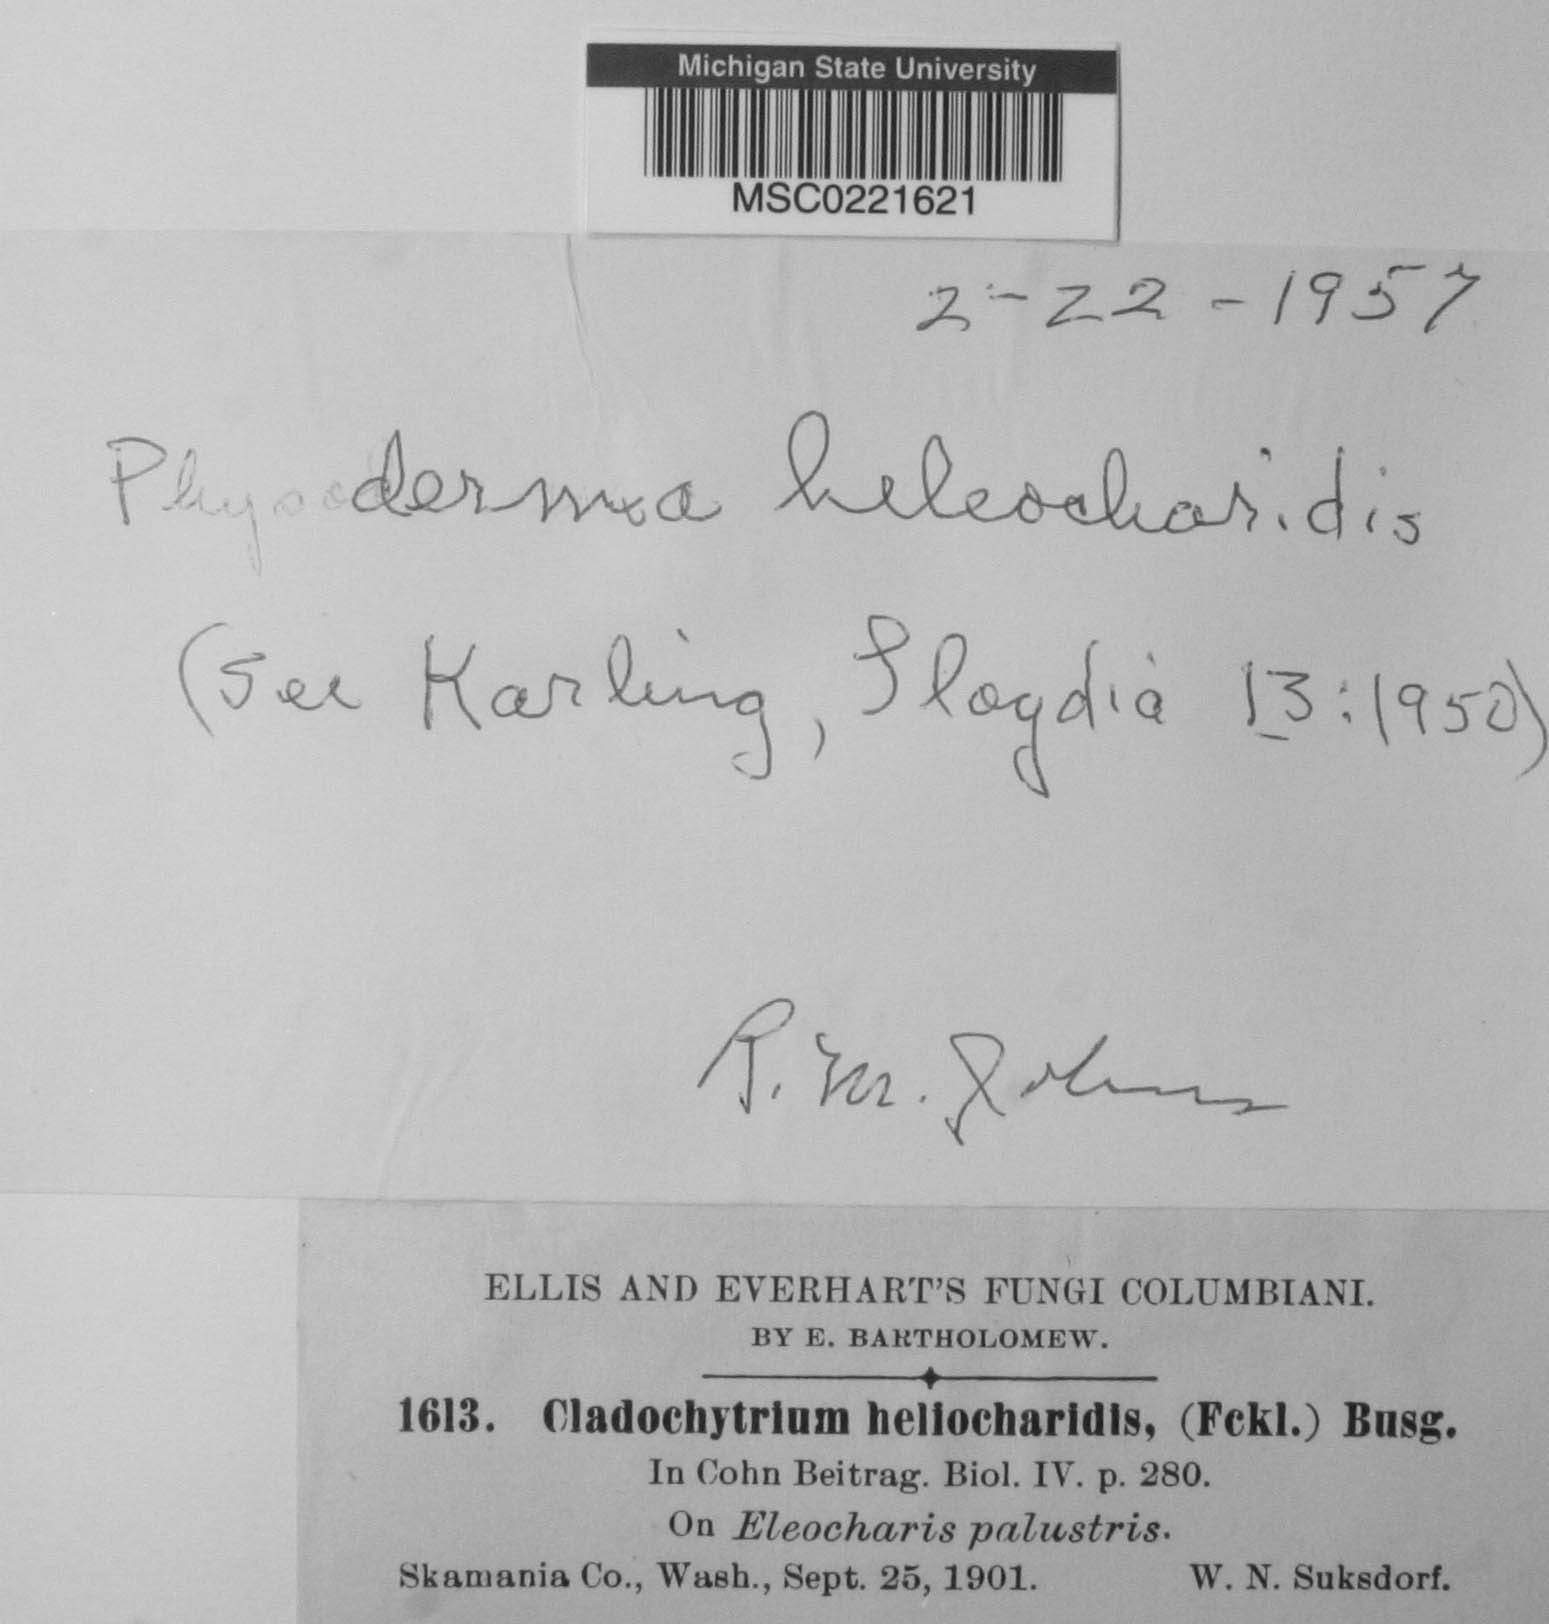 Michigan State University
MSC0221621
2-22-1957
Physoderma heleocharidis
(see Karling, Lloydia 13:1950)
R. M. Johns
ELLIS AND EVERHART'S FUNGI COLUMBIANI.
BY E. BARTHOLOMEW.
1613. Cladochytrium heliocharidis, (Fckl.) Busg.
In Cohn Beitrag. Biol. IV. p. 280.
On Eleocharis palustris.
Skamania Co., Wash., Sept. 25, 1901. W. N. Suksdorf.